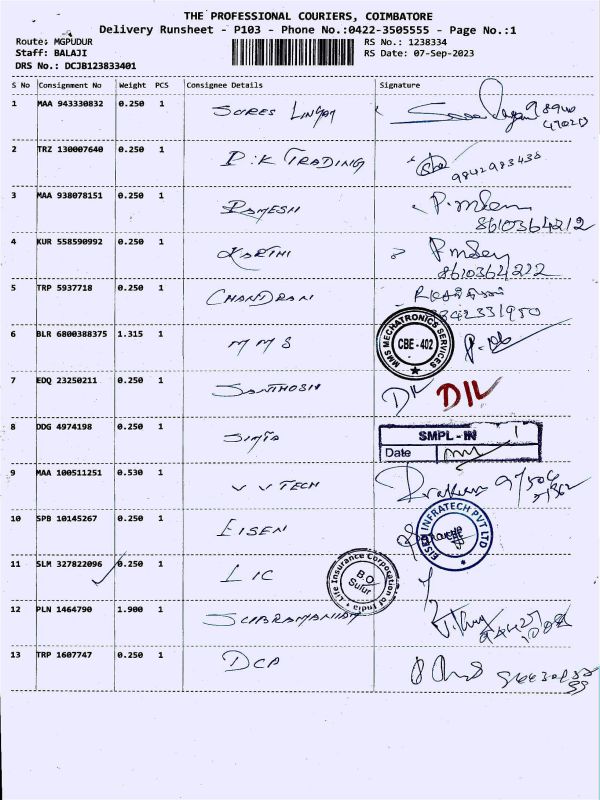 THE PROFESSIONAL COURIERS, COIMBATORE
Delivery Runsheet - P103 - Phone No.:0422-3505555 - Page No.:1
Route: MGPUDUR RS No.: 1238334
Staff: BALAJI RS Date: 07-Sep-2023
DRS No.: DCJB123833401
S No Consignment No Weight PCS Consignee Details Signature
1 MAA 943330832 0.250 1 SURES LINGAM
2 TRZ 130007640 0.250 1 P.K TRADING
9842983436
3 MAA 938078151 0.250 1 RAMESH
8610364212
4 KUR 558590992 0.250 1 KARTHI
8610364212
5 TRP 5937718 0.250 1 CHANDRAN
6 BLR 6800388375 1.315 1 MMS
MMS MECHATRONICS SERVICES
CBE - 402
7 EDQ 23250211 0.250 1 SANTHOSH DIL DIL
8 DDG 4974198 0.250 1
SMPL - IN
Date
9 MAA 100511251 0.530 1 V V TECH
10 SPB 10145267 0.250 1 EISEN
EISEN INFRATECH PVT LTD
11 SLM 327822096 0.250 1 LIC
Life Insurance Corporation of India
B.O
Sulur
12 PLN 1464790 1.900 1 SUBRAMANIAM
13 TRP 1607747 0.250 1 DCP